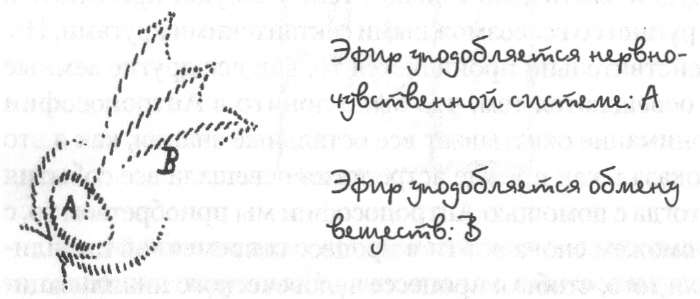 B
A
Эфир уподобляется нервно-
чувственной системе: A
Эфир уподобляется обмену
веществ: B